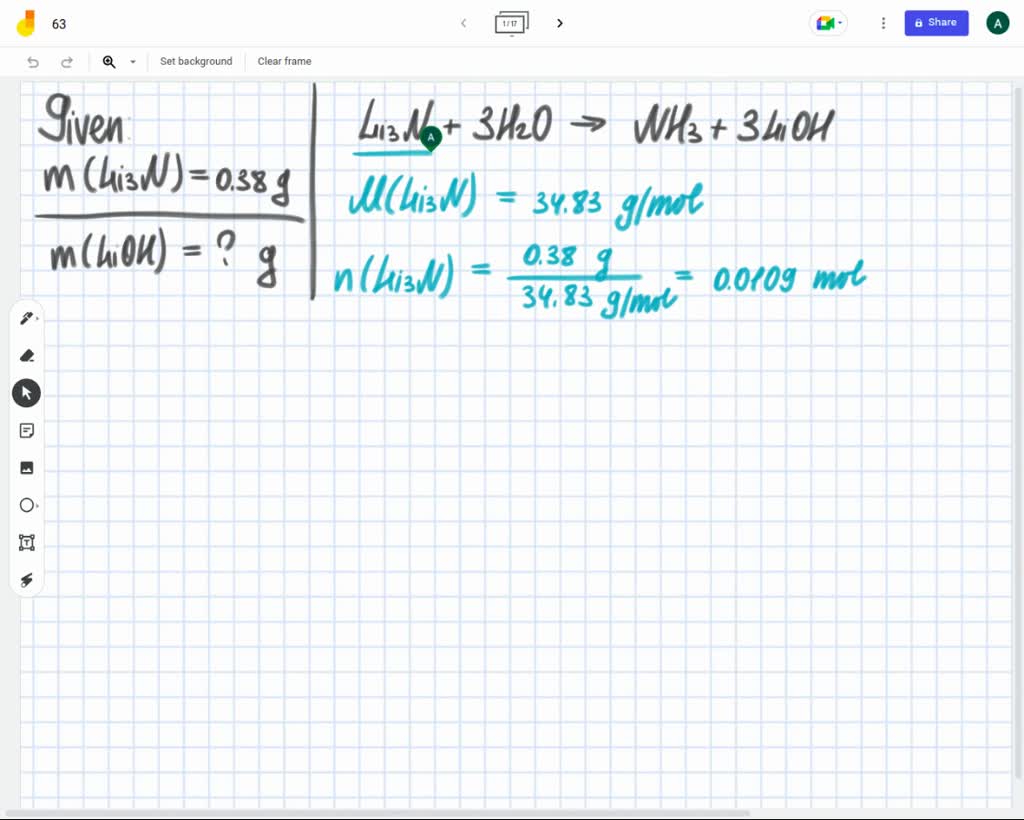 63
1 / 17
Share
A
Set background
Clear frame
Given:
m(Li3N) = 0.38 g
m(LiOH) = ? g
Li3N + 3H2O → NH3 + 3LiOH
A
M(Li3N) = 34.83 g/mol
n(Li3N) = 0.38 g / 34.83 g/mol = 0.0109 mol
T